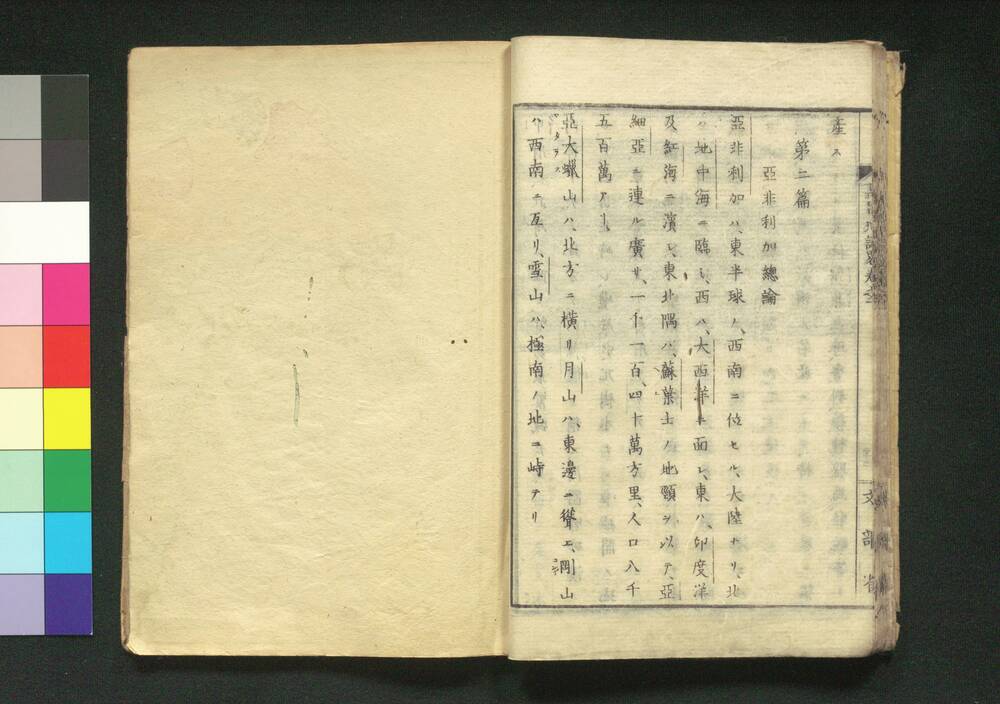 産ス
第二篇
亞非利加總論
亞非利加ハ、東半球ノ、西南ニ位セル、大陸ナリ、北
ハ地中海ニ臨ミ、西ハ、大西洋ニ面シ、東ハ、印度洋
及紅海ニ濱シ、東北隅ハ、蘇葉士ノ地頸ヲ以テ、亞
細亞ニ連ル廣サ、一千一百、四十萬方里、人口八千
五百萬アリ、
亞大蠟山ハ、北方ニ横リ月山ハ、東邊ニ聳エ、岡山
ハ西南ニ亙リ、雪山ハ、極南ノ地ニ峙テリ
文部省